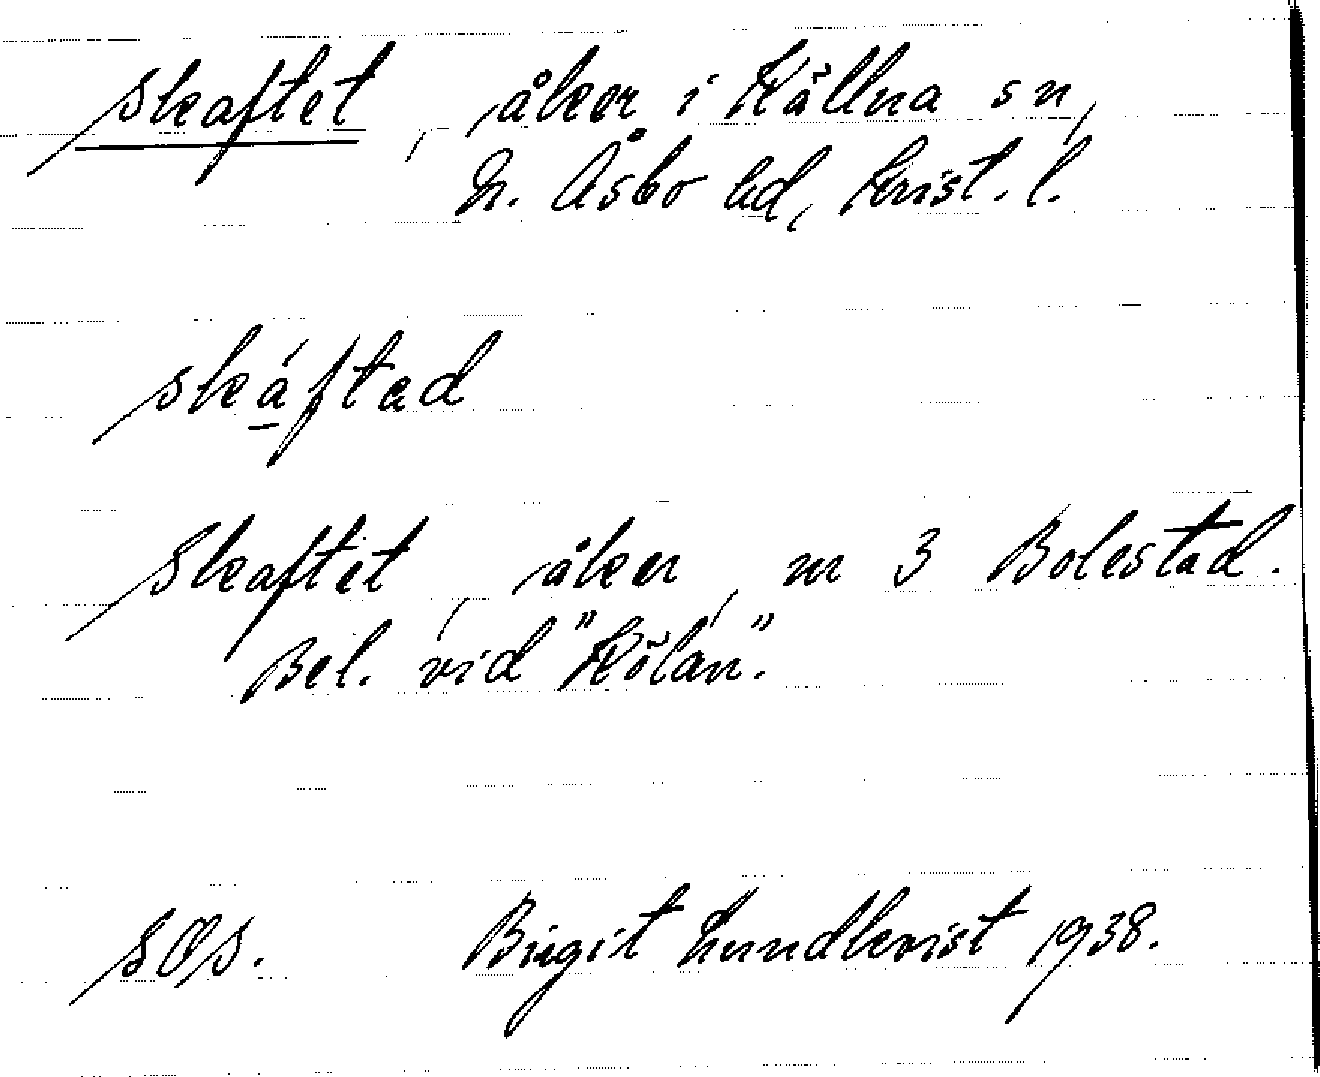 Skaftet, åker i Källna sn,
N. Åsbo hd, Krist. l.
skáftad
Skaftet, åker, nr 3 Bolestad.
Bel. vid "Kölan".
SOS. Birgit Lundkvist 1938.